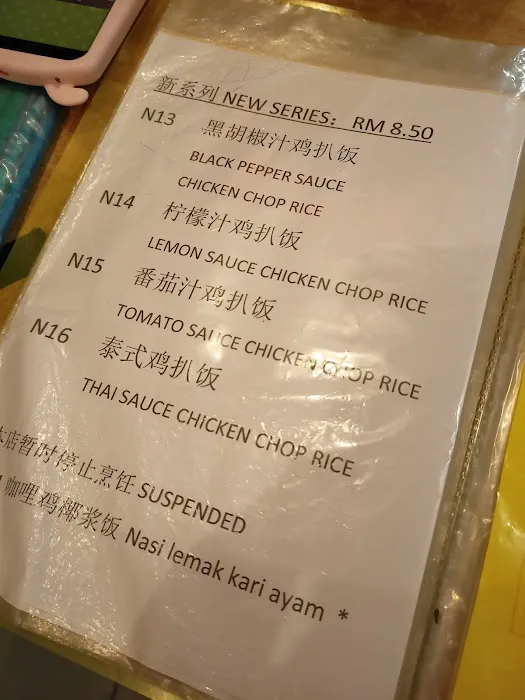 新系列 NEW SERIES: RM 8.50
N13 黑胡椒汁鸡扒饭
BLACK PEPPER SAUCE
CHICKEN CHOP RICE
N14 柠檬汁鸡扒饭
LEMON SAUCE CHICKEN CHOP RICE
N15 番茄汁鸡扒饭
TOMATO SAUCE CHICKEN CHOP RICE
N16 泰式鸡扒饭
THAI SAUCE CHICKEN CHOP RICE
本店暂时停止烹饪 SUSPENDED
咖哩鸡椰浆饭 Nasi lemak kari ayam *